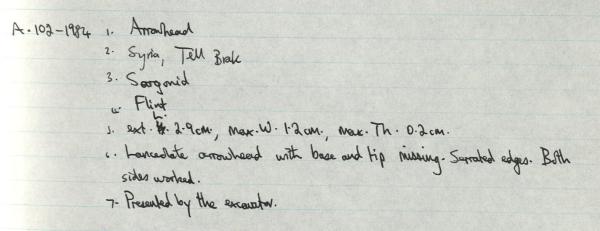 A. 102-1984 1. Arrowhead
2. Syria, Tell Brak
3. Sargonid
4. Flint
5. ext. L. 2.9cm, max. W. 1.2cm, max. Th. 0.2cm.
6. Lanceolate arrowhead with base and tip missing. Serrated edges. Both
sides worked.
7. Presented by the excavator.